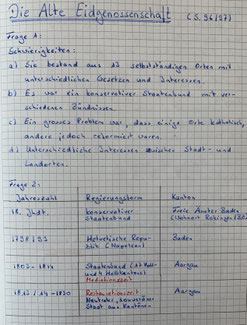 Die Alte Eidgenossenschaft (S. 96/97)
Frage 1:
Schwierigkeiten:
a) Sie bestand aus 13 selbstständigen Orten mit
unterschiedlichen Gesetzen und Interessen.
b) Es war ein konservativer Staatenbund mit ver-
schiedenen Bündnissen.
c) Ein grosses Problem war, dass einige Orte katholisch,
andere jedoch reformiert waren.
d) Unterschiedliche Interessen zwischen Stadt- und
Landorten.
Frage 2:
Jahreszahl Regierungsform Kanton
18. Jhdt. konservativer Freie Ämter Baden
Staatenbund
1798/99 Helvetische Repu- Baden
blik (Napoleon)
1803-1814 Staatenbund Aargau
Mediationszeit
/14-1830 Restaurationszeit Aargau
Neutraler,
Staat aus Kantonen